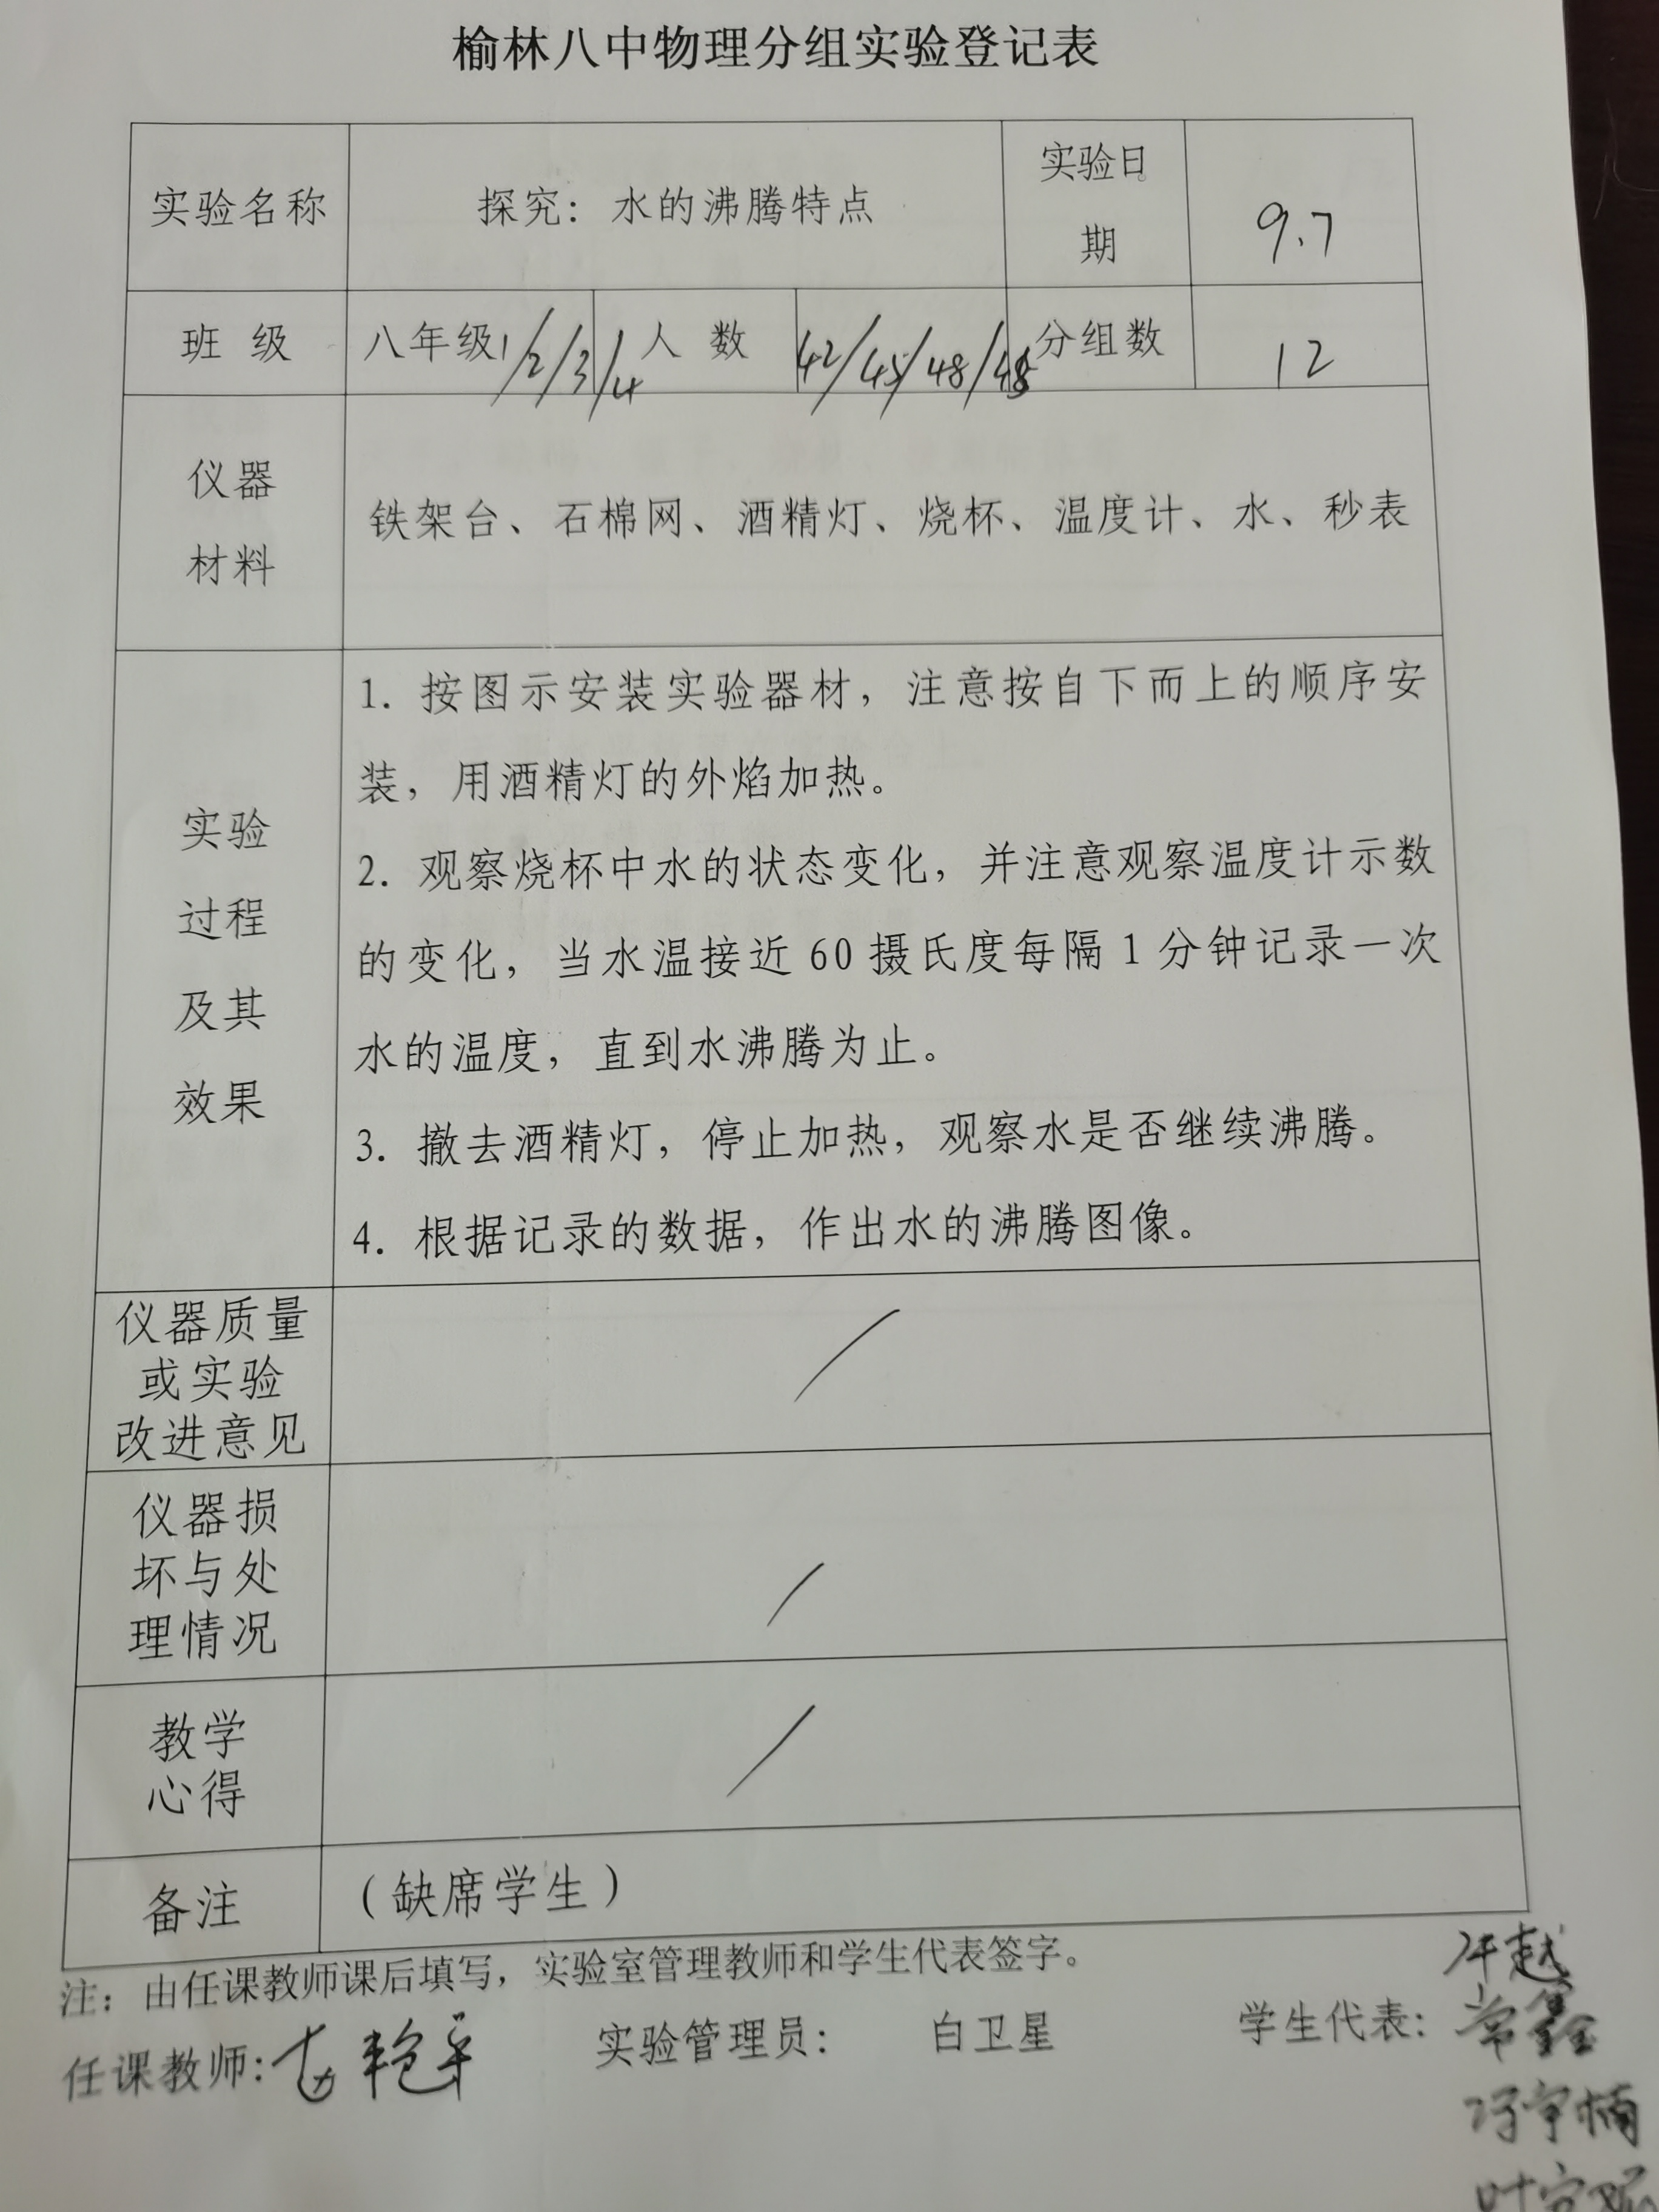 榆林八中物理分组实验登记表
实验名称 探究：水的沸腾特点 实验日期 9.7
班 级 八年级1/2/3/4 人 数 42/45/48/48 分组数 12
仪器
材料
铁架台、石棉网、酒精灯、烧杯、温度计、水、秒表
实验
过程
及其
效果
1. 按图示安装实验器材，注意按自下而上的顺序安
装，用酒精灯的外焰加热。
2. 观察烧杯中水的状态变化，并注意观察温度计示数
的变化，当水温接近 60 摄氏度每隔 1 分钟记录一次
水的温度，直到水沸腾为止。
3. 撤去酒精灯，停止加热，观察水是否继续沸腾。
4. 根据记录的数据，作出水的沸腾图像。
仪器质量
或实验
改进意见
/
仪器损
坏与处
理情况
/
教学
心得
/
备注 （缺席学生）
注：由任课教师课后填写，实验室管理教师和学生代表签字。
任课教师: 实验管理员： 白卫星 学生代表：
常鑫